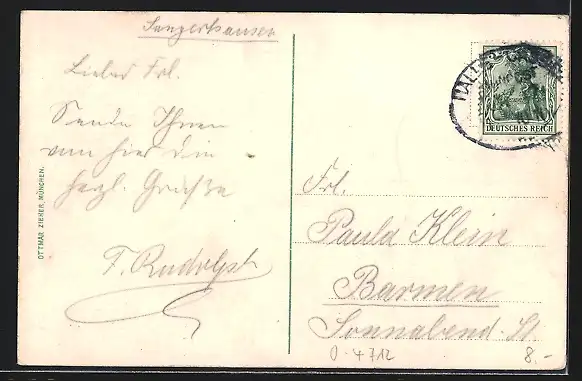 Sangerhausen
Liebes Frl.
Sende Ihnen
von hier die
herzl. Grüße
F. Rudolph
OTTMAR ZIEHER, MÜNCHEN.
HALLE
DEUTSCHES REICH
Frl.
Paula Klein
Barmen
Sonnabend-St
0-4712
8.-